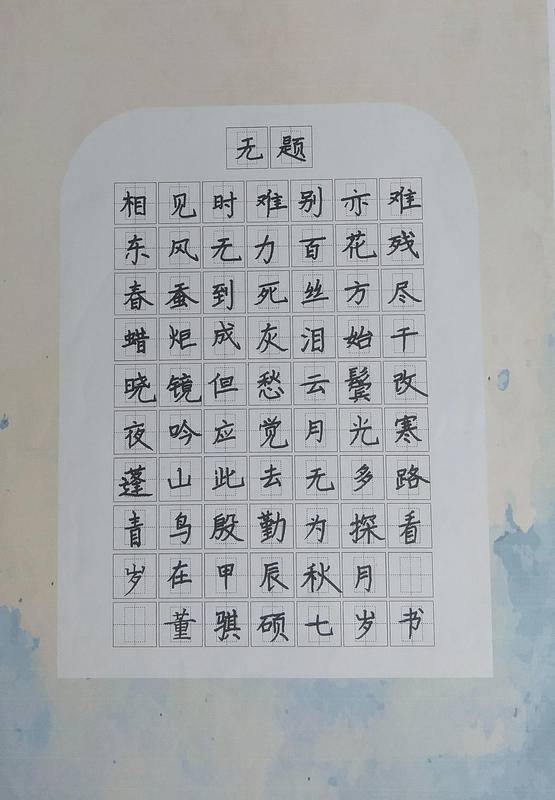 无题
相见时难别亦难
东风无力百花残
春蚕到死丝方尽
蜡炬成灰泪始干
晓镜但愁云鬓改
夜吟应觉月光寒
蓬山此去无多路
青鸟殷勤为探看
岁在甲辰秋月
董骐硕七岁书